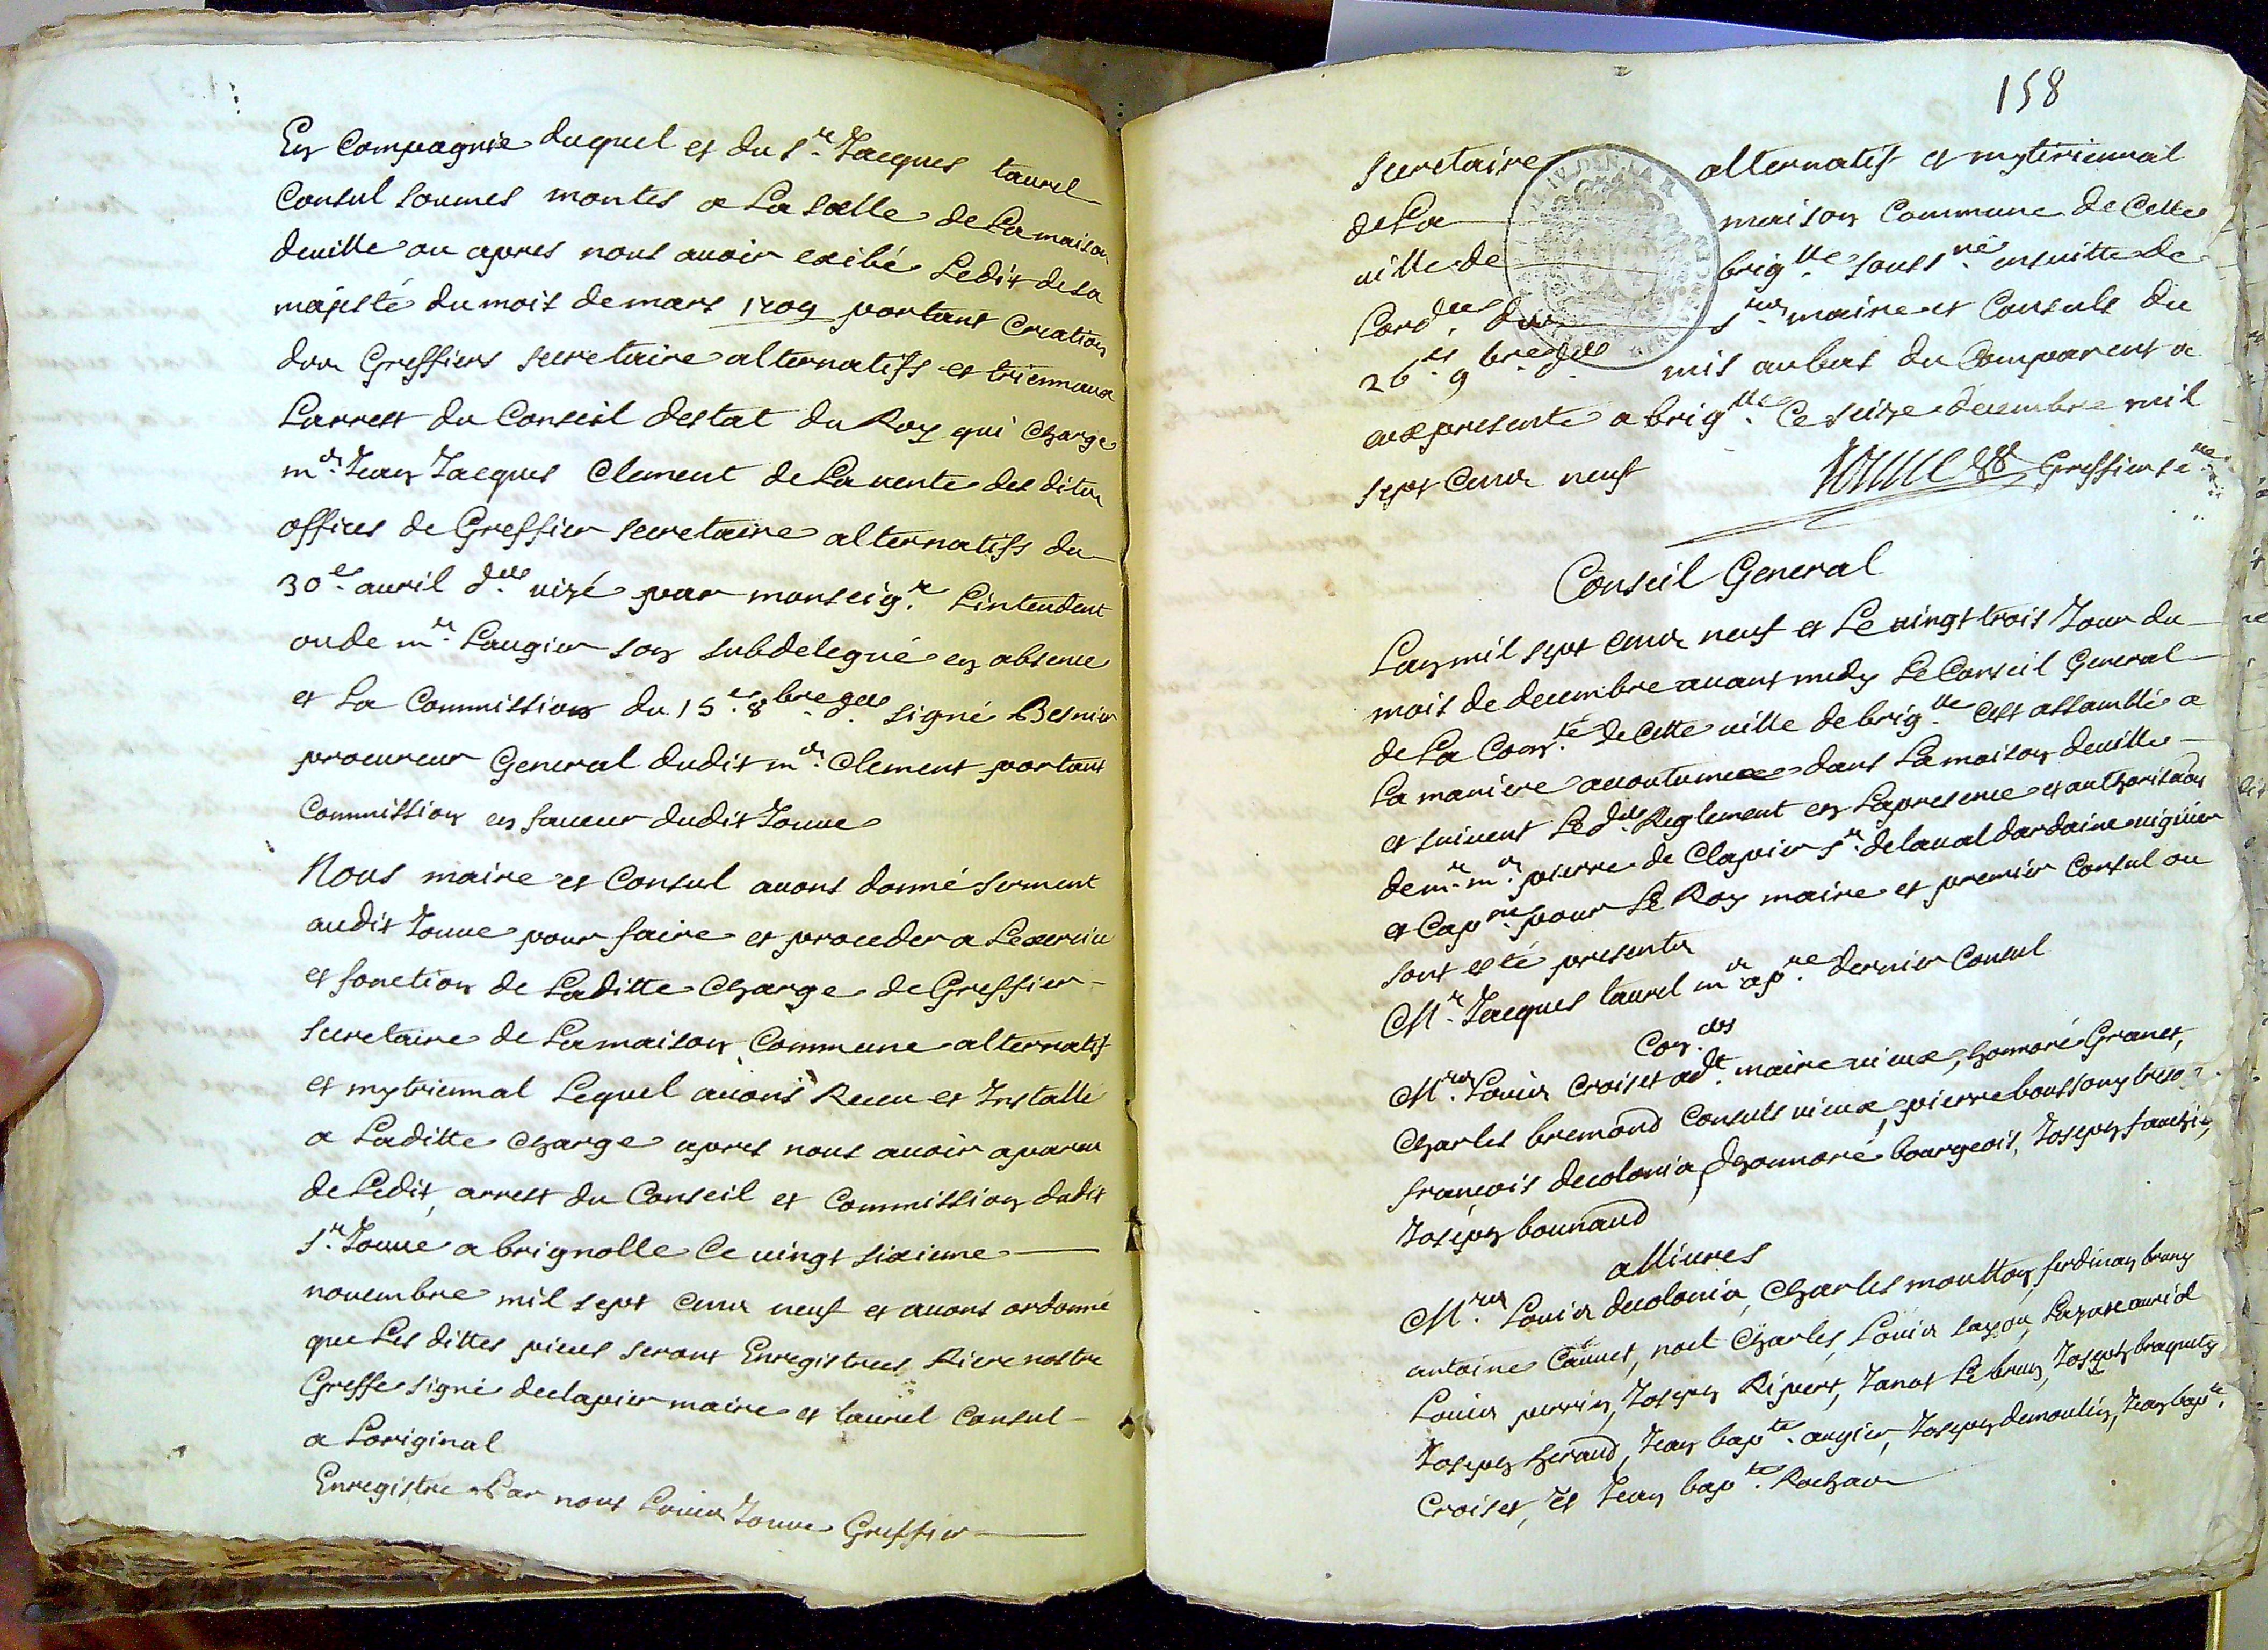 En Compagnie duquel et du s.r Jacques taurel
Consul sommes montés a La salle de La maison
deuille ou apres nous auoir exibé Ledit de sa
majesté du mois de mars 1709 portant Creation
des Greffiers secretaire alternatifs et triennaux
Larrest du Conseil destat du Roy qui Charge
m.e Jean Jacques Clement de La uente des dits
offices de Greffier secretaire alternatifs du
30.e auril d.e uizé par monseig.r Lintendent
ou de m.r Laugier son subdelegué en absence
et La Commission du 15.e 8.bre d.e signé Besnier
procureur General dudit m.e Clement portant
Commission en faueur dudit Jouue
Nous maire et Consul auons donné serment
audit Jouue pour faire et proceder a Lexercice
et fonction de Laditte Charge de Greffier
secretaire de La maison Commune alternatif
et mytriennal Lequel auons Receu et Installé
a Laditte Charge apres nous auoir aparu
de Ledit, arrest du Conseil et Commission dudit
s.r Jouue a brignolle Ce uingt sixieme
nouembre mil sept Cens neuf et auons ordonné
que Les dittes pieces seront Enregistrees Riere nostre
Greffe signé declapier maire et taurel Consul
a Loriginal
Enregistré Par nous Louis Jouue Greffier
158
secretaire alternatif et mytiriennal
de La maison Commune de Cette
uille de brig.lle souss.né ensuitte de
Lord.ce des s.rs maire et Consuls du
26.e 9.bre d.e mis au bas du Comparent a
eux presenté a brig.lle Ce seize decembre mil
sept Cens neuf Jouue Greffier se.re
Conseil General
Lan mil sept Cens neuf et Le uingt trois Jour du
mois de decembre auant midy Le Conseil General
de La Com.té de Cette uille de brig.lle cest assamblé a
La maniere acoutumee dans La maison deuille
et suiuent Le d.e Reglement en La presence et authorisaon
de m.r m.e pierre de Clapier s.r de laual dardaine uiguier
et Cap.ne pour Le Roy maire et premier Consul ou
sont esté presents
M.r Jacques taurel m.e ap.re dernier Consul
Con.ers
M.rs Louis Croiset ad.t maire uieux, honnoré Granet,
Charles bremond Consuls uieux, pierre boussony treso.
francois decolonia, dhonnoré bourgeois, Joseph fauchier,
Joseph bounaud
alliures
M.rs Louis decolonia, Charles moutton, ferdinan bruny
antoine Cauuet, noel Charles, Louis layon, Lazare auriol
Louis perrin, Joseph Ripert, Janot Lebrun, Joseph braquety
Joseph heraud, Jean bap.te augier, Joseph demoulin, Jean bap.te
Croiset, et Jean bap.te Rochas